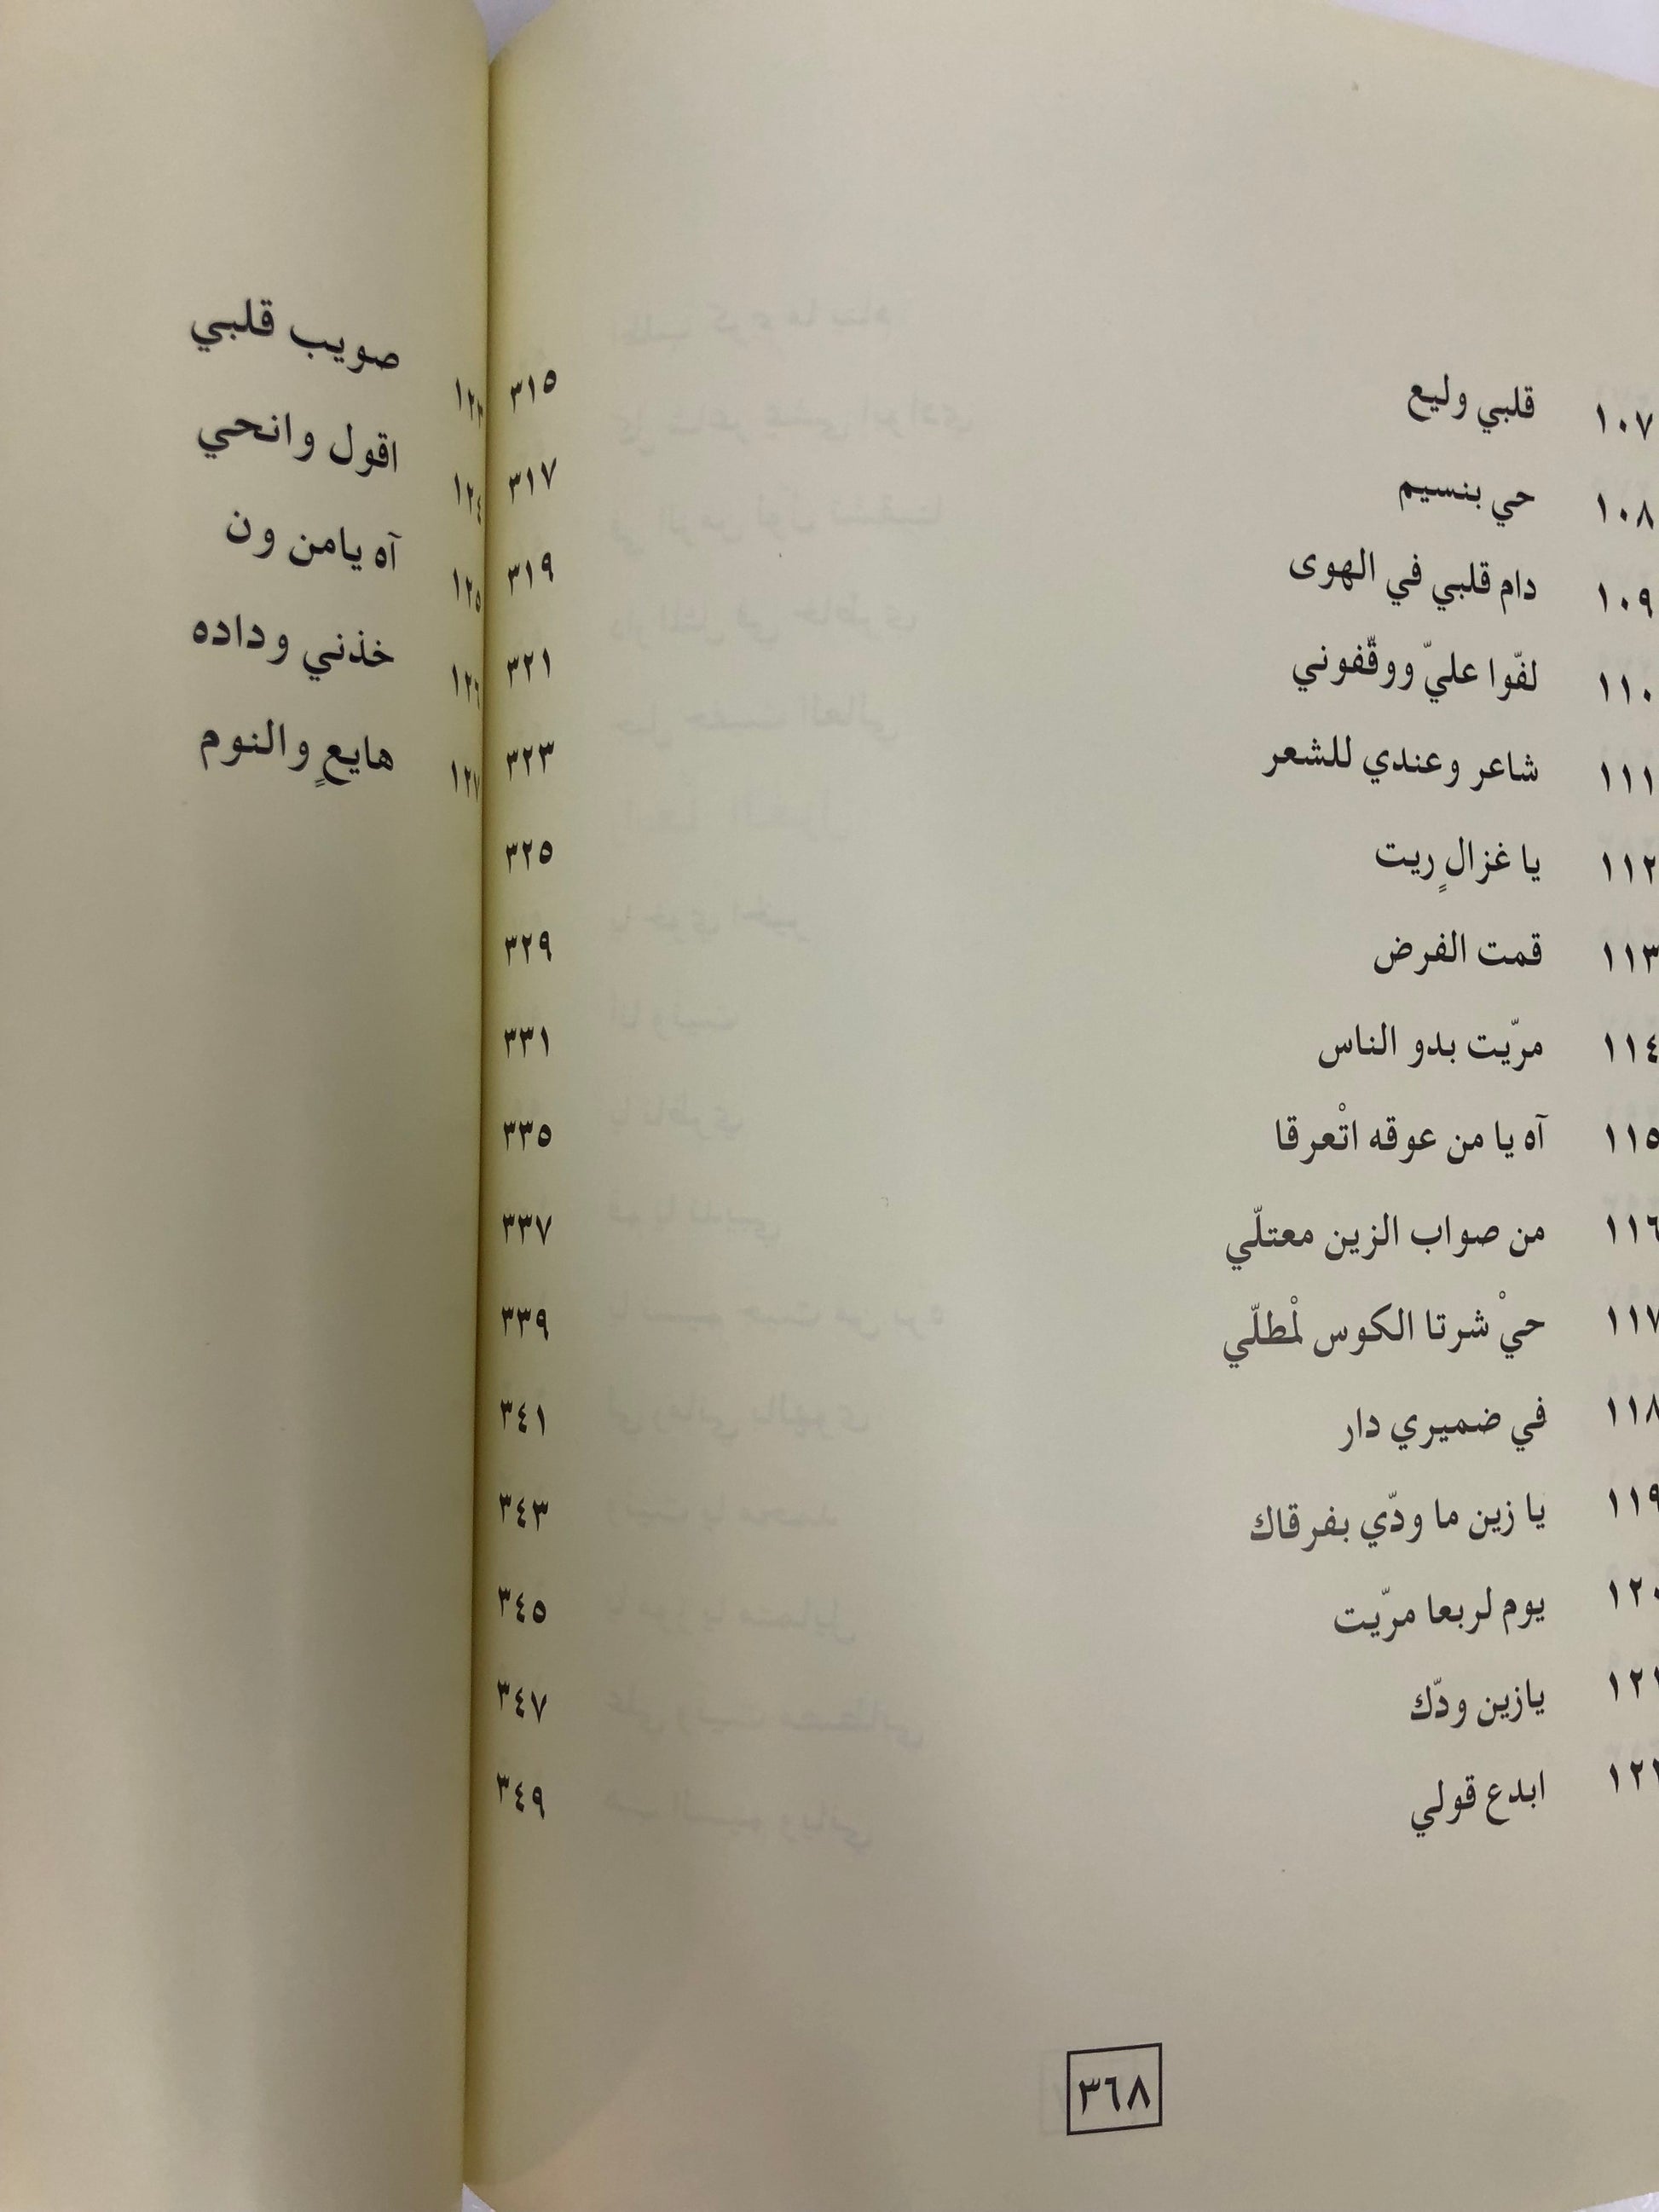 ١٠٧ قلبي وليع ٣١٥
١٠٨ حي بنسيم ٣١٧
١٠٩ دام قلبي في الهوى ٣١٩
١١٠ لفّوا عليّ ووقّفوني ٣٢١
١١١ شاعر وعندي للشعر ٣٢٣
١١٢ يا غزالٍ ريت ٣٢٥
١١٣ قمت الفرض ٣٢٩
١١٤ مرّيت بدو الناس ٣٣١
١١٥ آه يا من عوقه اتْعرقا ٣٣٥
١١٦ من صواب الزين معتلّي ٣٣٧
١١٧ حيْ شرتا الكوس لمْطلّي ٣٣٩
١١٨ في ضميري دار ٣٤١
١١٩ يا زين ما ودّي بفرقاك ٣٤٣
١٢٠ يوم لربعا مرّيت ٣٤٥
١٢١ يازين ودّك ٣٤٧
١٢٢ ابدع قولي ٣٤٩
٣٦٨
١٢٣ صويب قلبي
١٢٤ اقول وانحي
١٢٥ آه يامن ون
١٢٦ خذني وداده
١٢٧ هايعٍ والنوم